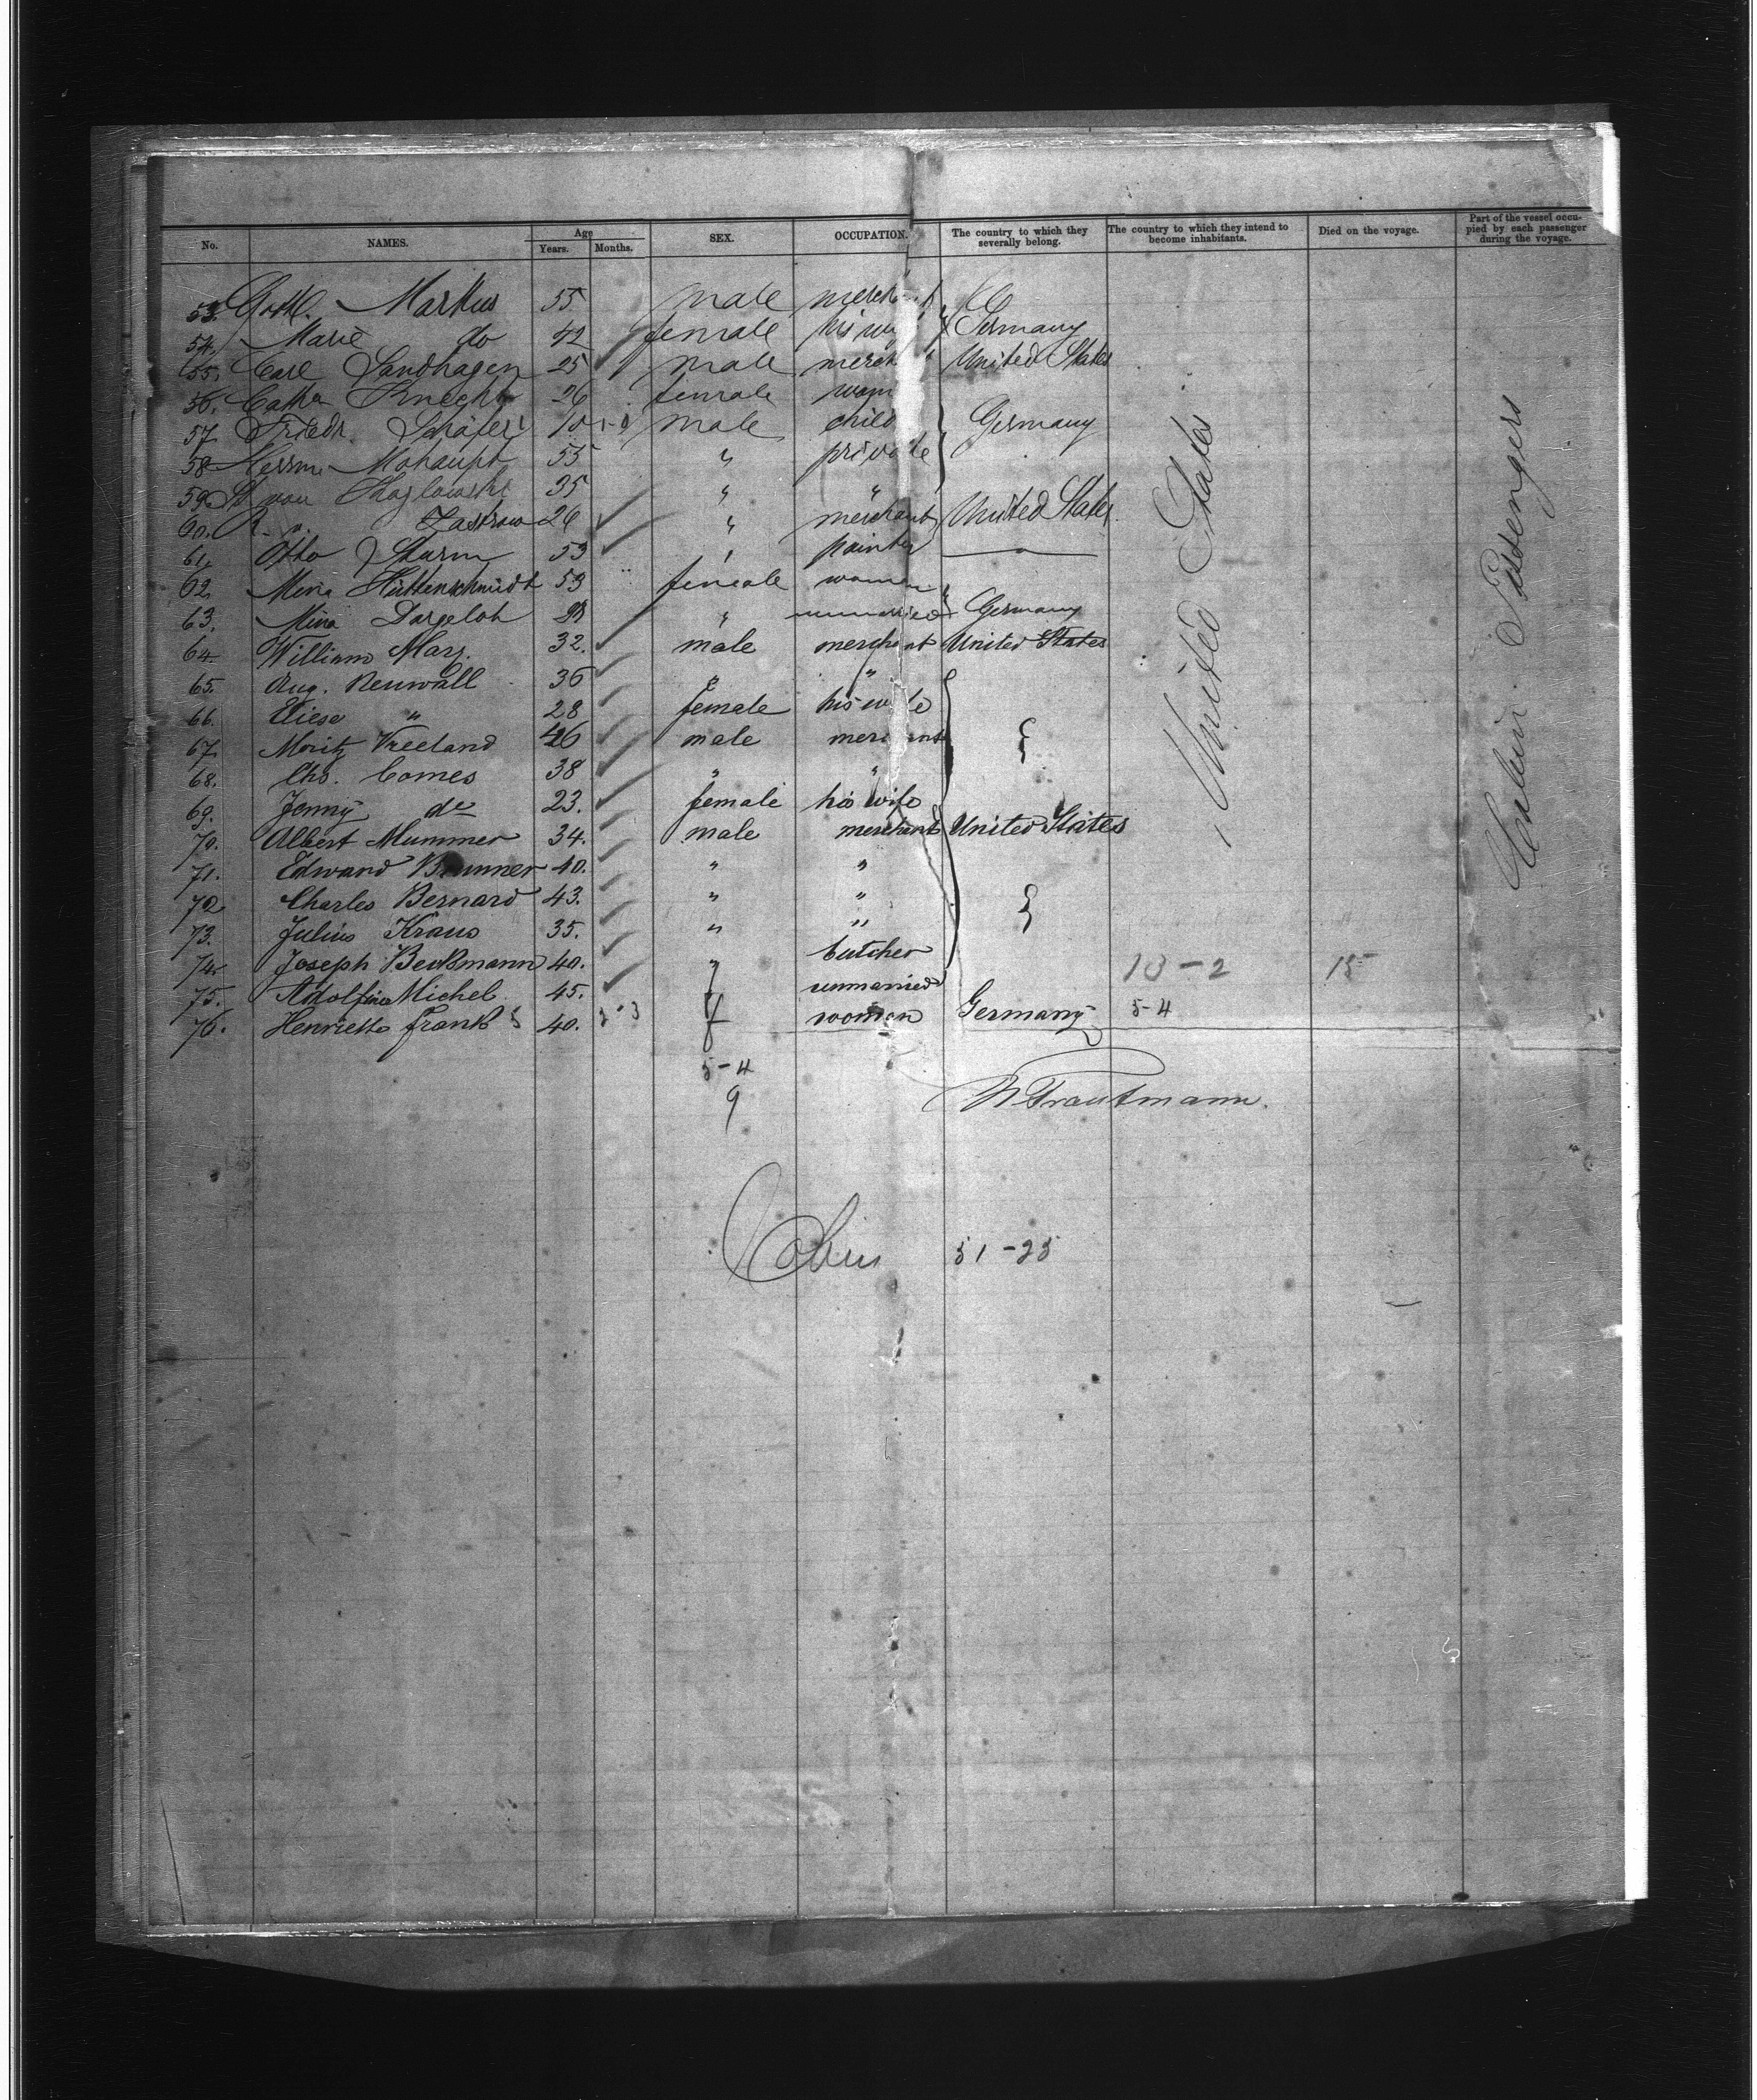 No. NAMES. Age Years. Months. SEX. OCCUPATION. The country to which they severally belong. The country to which they intend to become inhabitants. Died on the voyage. Part of the vessel occupied by each passenger during the voyage.
53. Gottl. Markus 55 male
54. Marie do 42 female his Germany
55. Carl Sandhagen 25 male United States
56. Catha Knecht 26 female
57. Friedr. Schäfer 10 male child Germany
58 Herrm. Mohaupt 55 " private
59 St von 35 " "
60. R. v. Zastrow 26 " merchant United States
61. Otto Sturm 53 " painter —
62. Mina Hüttenschmidt 53 female woman
63. Mina Dargeloh " unmarried Germany
64. William Marz. 32. male merchant United States
65. Aug. Neuwall 36 " "
66. Eliese " 28 female his wife
67. Moritz Vreeland 46 male merchant
68. Chs. Comes 38 " "
69. Jenny do 23. female his wife
70. Albert Mummer 34. male merchant United States
71. Edward Brunner 40. " "
72 Charles Bernard 43. " "
73. Julius Kraus 35. " "
74. Joseph Beckmann 40. " butcher 10-2 15
75. Adolfine Michel 45. f unmarried
76. Henriette Frank 40. f woman Germany 5-4
United States
Cabin Passengers
5-4
9
W Trautmann.
Cabin 51-25